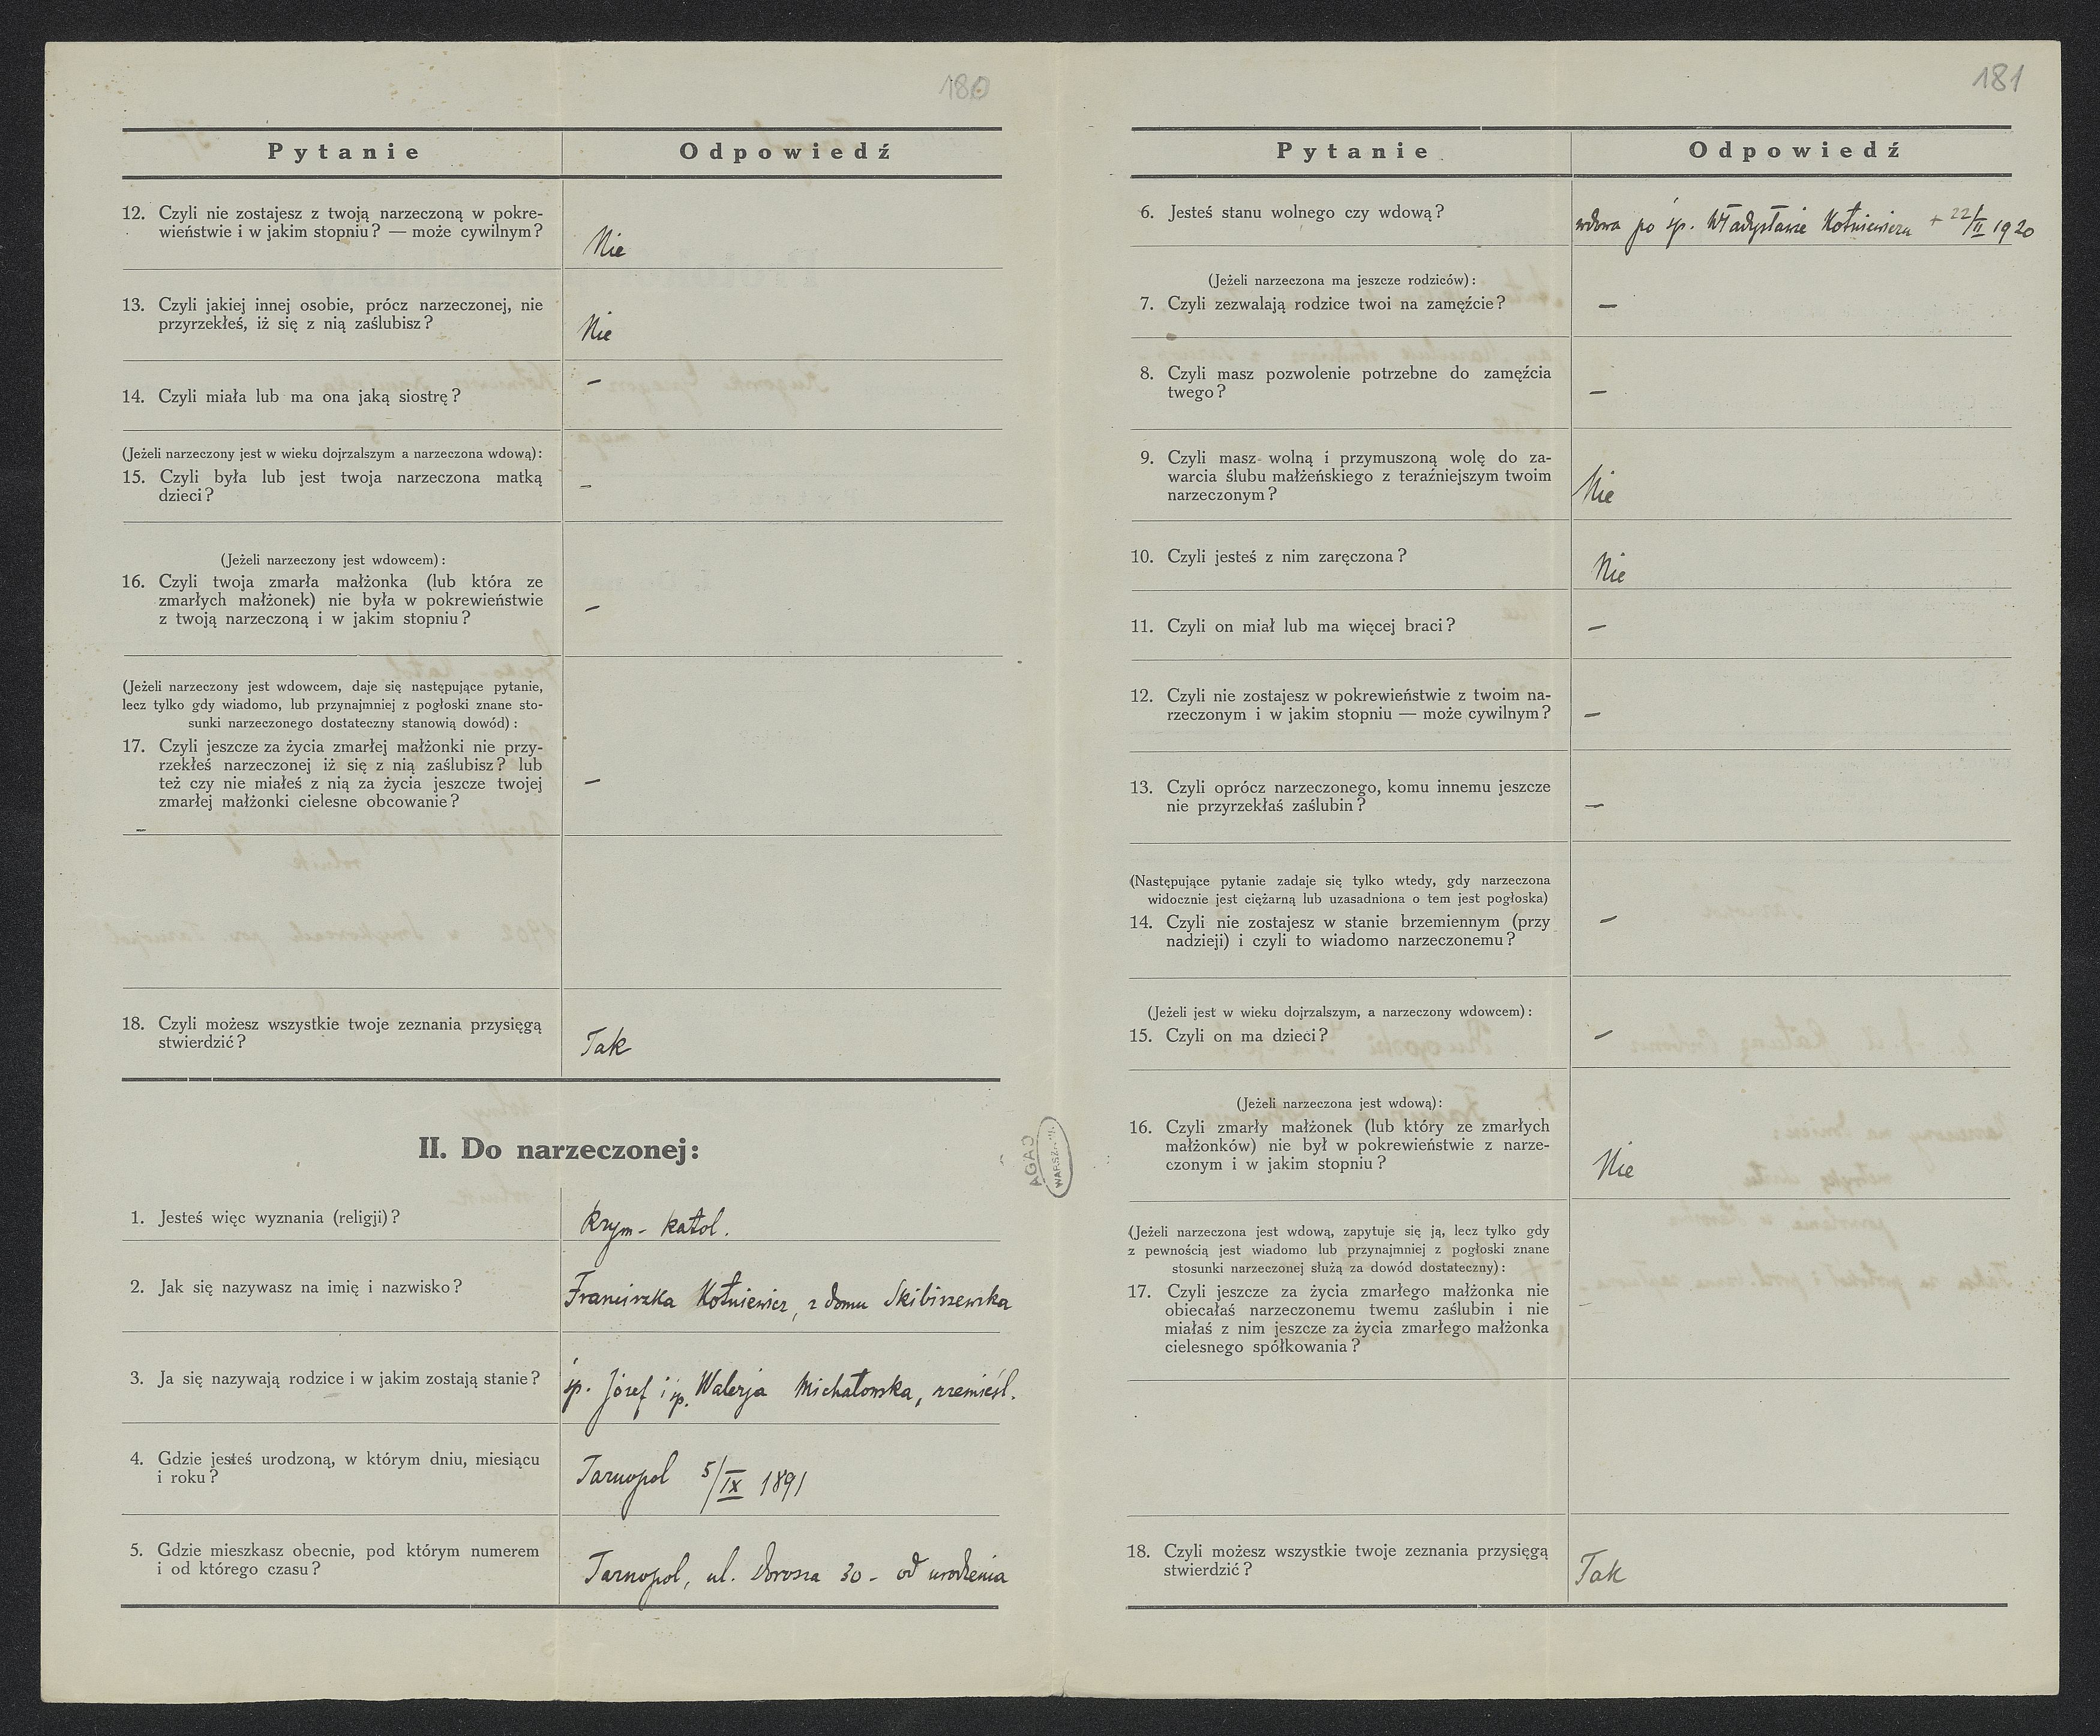 180
Pytanie Odpowiedź
12. Czyli nie zostajesz z twoją narzeczoną w pokre-
wieństwie i w jakim stopniu? — może cywilnym?
Nie
13. Czyli jakiej innej osobie, prócz narzeczonej, nie
przyrzekłeś, iż się z nią zaślubisz?
Nie
14. Czyli miała lub ma ona jaką siostrę?
—
(Jeżeli narzeczony jest w wieku dojrzalszym a narzeczona wdową):
15. Czyli była lub jest twoja narzeczona matką
dzieci?
—
(Jeżeli narzeczony jest wdowcem):
16. Czyli twoja zmarła małżonka (lub która ze
zmarłych małżonek) nie była w pokrewieństwie
z twoją narzeczoną i w jakim stopniu?
—
(Jeżeli narzeczony jest wdowcem, daje się następujące pytanie,
lecz tylko gdy wiadomo, lub przynajmniej z pogłoski znane sto-
sunki narzeczonego dostateczny stanowią dowód):
17. Czyli jeszcze za życia zmarłej małżonki nie przy-
rzekłeś narzeczonej iż się z nią zaślubisz? lub
też czy nie miałeś z nią za życia jeszcze twojej
zmarłej małżonki cielesne obcowanie?
—
18. Czyli możesz wszystkie twoje zeznania przysięgą
stwierdzić?
Tak
II. Do narzeczonej:
1. Jesteś więc wyznania (religji)?
Rzym-katol.
2. Jak się nazywasz na imię i nazwisko?
Franciszka Kołniewicz, z domu Skibiszewska
3. Ja się nazywają rodzice i w jakim zostają stanie?
śp. Józef i śp. Walerja Michałowska, rzemieśl.
4. Gdzie jesteś urodzoną, w którym dniu, miesiącu
i roku?
Tarnopol 5/IX 1891
5. Gdzie mieszkasz obecnie, pod którym numerem
i od którego czasu?
Tarnopol, ul. 30 - od urodzenia
AGAD
WARSZAWA
181
Pytanie Odpowiedź
6. Jesteś stanu wolnego czy wdową?
wdowa po śp. Władysławie Kołniewiczu + 22/II 1920
(Jeżeli narzeczona ma jeszcze rodziców):
7. Czyli zezwalają rodzice twoi na zamęźcie?
—
8. Czyli masz pozwolenie potrzebne do zamęźcia
twego?
—
9. Czyli masz wolną i przymuszoną wolę do za-
warcia ślubu małżeńskiego z teraźniejszym twoim
narzeczonym?
Nie
10. Czyli jesteś z nim zaręczona?
Nie
11. Czyli on miał lub ma więcej braci?
—
12. Czyli nie zostajesz w pokrewieństwie z twoim na-
rzeczonym i w jakim stopniu — może cywilnym?
—
13. Czyli oprócz narzeczonego, komu innemu jeszcze
nie przyrzekłaś zaślubin?
—
(Następujące pytanie zadaje się tylko wtedy, gdy narzeczona
widocznie jest ciężarną lub uzasadniona o tem jest pogłoska)
14. Czyli nie zostajesz w stanie brzemiennym (przy
nadzieji) i czyli to wiadomo narzeczonemu?
—
(Jeżeli jest w wieku dojrzalszym, a narzeczony wdowcem):
15. Czyli on ma dzieci?
—
(Jeżeli narzeczona jest wdową):
16. Czyli zmarły małżonek (lub który ze zmarłych
małżonków) nie był w pokrewieństwie z narze-
czonym i w jakim stopniu?
Nie
(Jeżeli narzeczona jest wdową, zapytuje się ją, lecz tylko gdy
z pewnością jest wiadomo lub przynajmniej z pogłoski znane
stosunki narzeczonej służą za dowód dostateczny):
17. Czyli jeszcze za życia zmarłego małżonka nie
obiecałaś narzeczonemu twemu zaślubin i nie
miałaś z nim jeszcze za życia zmarłego małżonka
cielesnego spółkowania?
18. Czyli możesz wszystkie twoje zeznania przysięgą
stwierdzić?
Tak